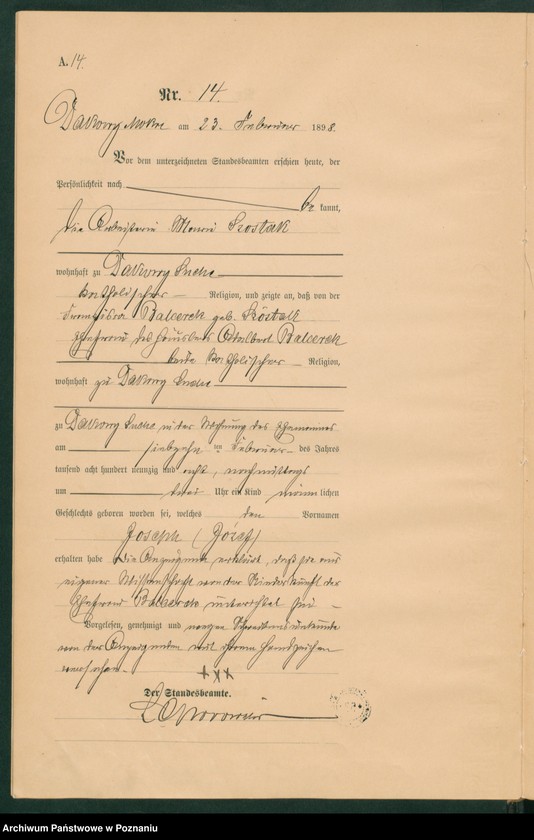 A. 14.
Nr. 14.
Dakowy Mokre am 23. Februar 1898.
Vor dem unterzeichneten Standesbeamten erschien heute, der
Persönlichkeit nach
be kannt,
die Arbeiterin Szostak
wohnhaft zu Dakowy Suche
katholischer Religion, und zeigte an, daß von der
Franziska Balcerek geb. Szostak
Ehefrau des Adalbert Balcerek
beide katholischer Religion,
wohnhaft zu Dakowy Suche
zu Dakowy Suche in der Wohnung des Ehemannes
am siebzehn ten Februar des Jahres
tausend acht hundert neunzig und acht, nachmittags
um drei Uhr ein Kind männ lichen
Geschlechts geboren worden sei, welches den Vornamen
Joseph (Józef)
erhalten habe. Die Anzeigende erklärt, daß sie aus
eigener Wissenschaft von der Niederkunft der
Ehefrau Balcerek unterrichtet sei
Vorgelesen, genehmigt und wegen Schreibensunkunde
von der Anzeigenden mit ihrem Handzeichen
versehen.
+++
Der Standesbeamte.
Archiwum Państwowe w Poznaniu